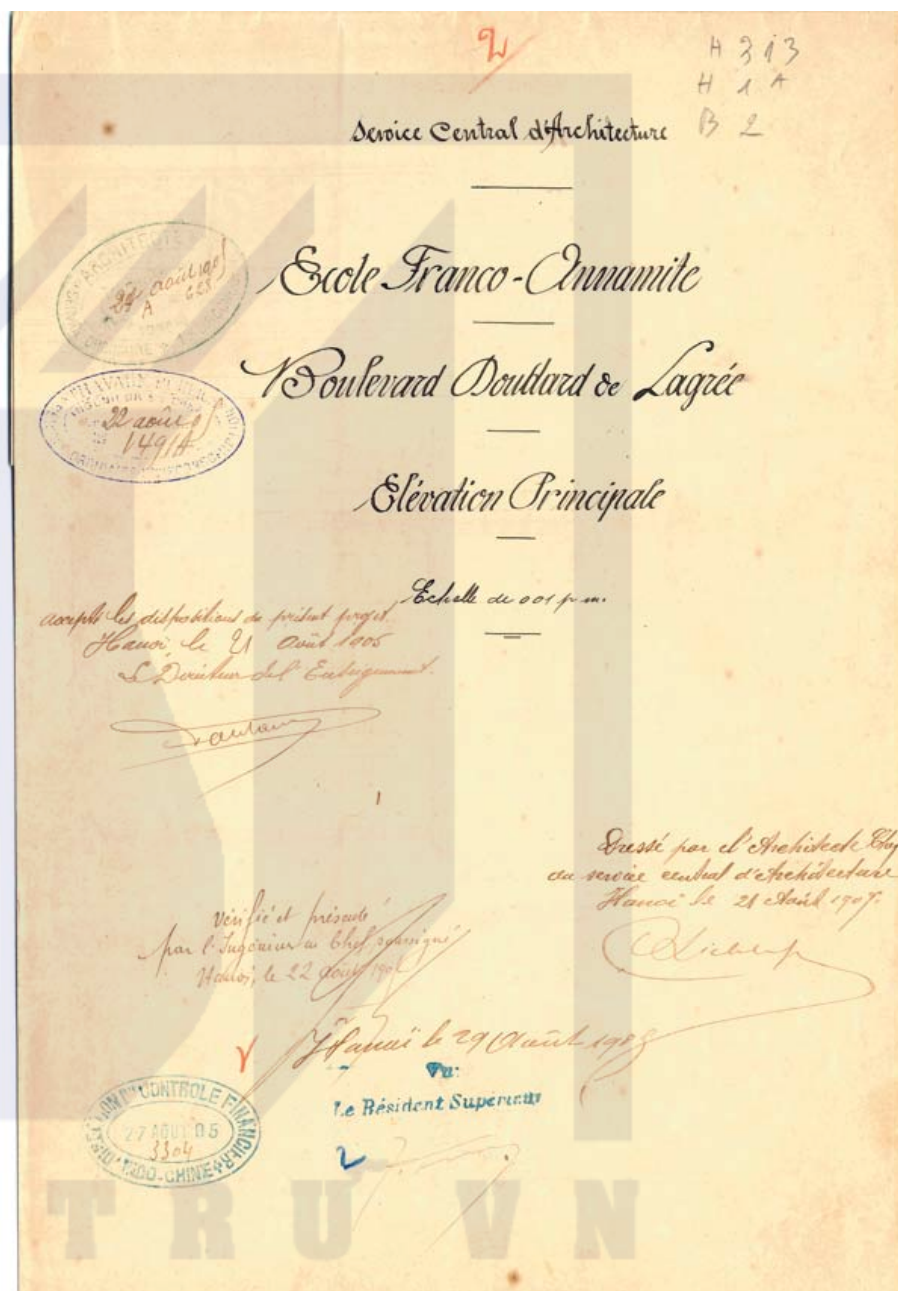 2
H 313
H 1 A
B 2
Service Central d'Architecture
Ecole Franco-Annamite
Boulevard Doudard de Lagrée
Elévation Principale
Echelle de 001 p. m.
ARCHITECTE
22 août 1905
A 628
22 août 05
1491A
accepté les dispositions du présent projet.
Hanoï, le 21 Août 1905
Le Directeur de l'Enseignement.
Dressé par l'Architecte
au service central d'Architecture
Hanoï le 21 Août 1905.
Vérifié et présenté
par l'Ingénieur en Chef soussigné
Hanoï, le 22 août 1905
Hanoï le 29 Août 1905
Vu:
Le Résident Supérieur
2
DIRECTION DU CONTROLE FINANCIER
27 AOUT 05
3304
INDO-CHINE
TRU VN